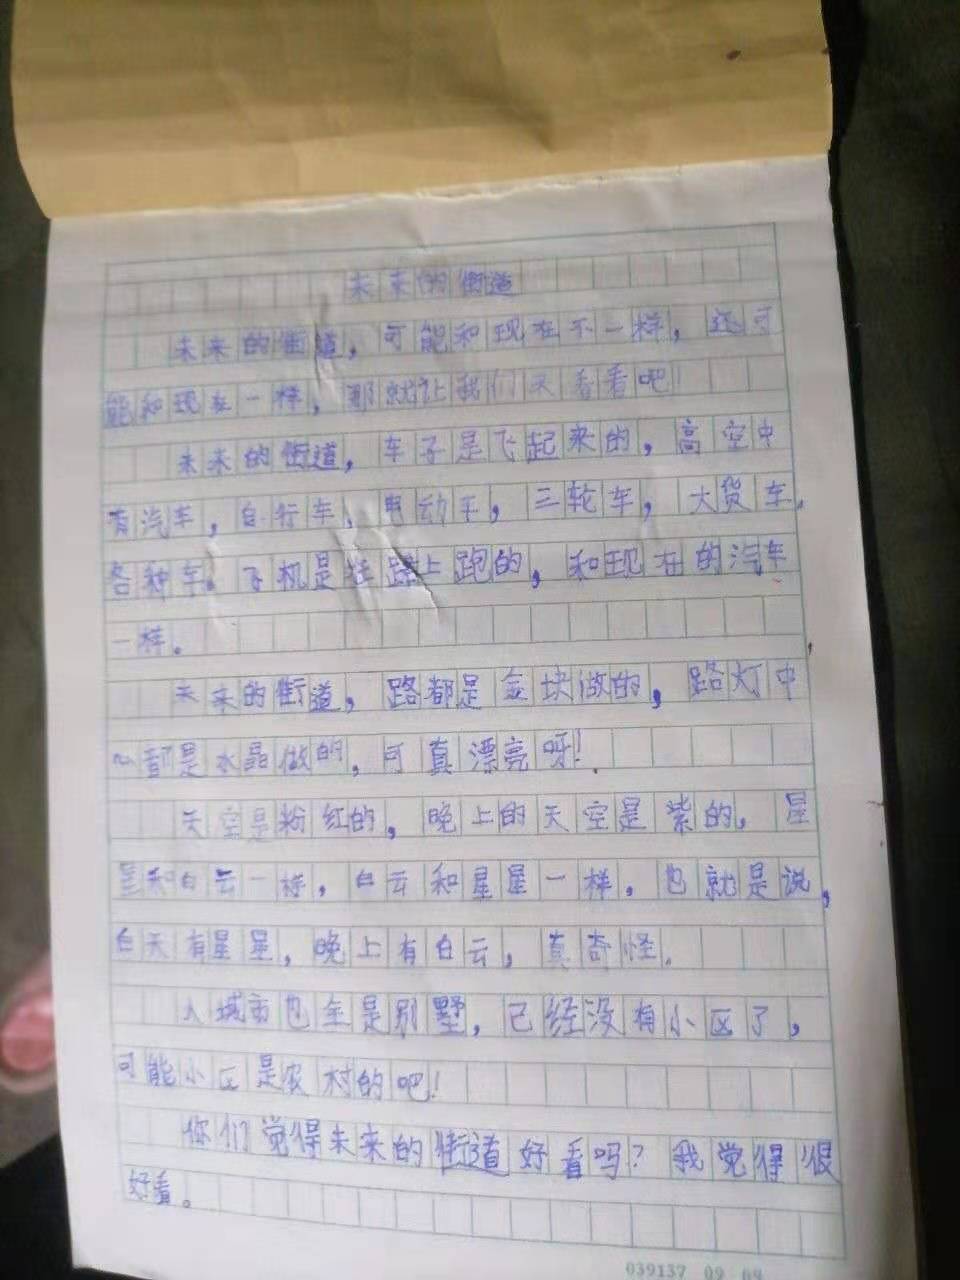 未来的街道
未来的街道，可能和现在不一样，还可
能和现在一样，那就让我们来看看吧！
未来的街道，车子是飞起来的，高空中
有汽车，自行车，电动车，三轮车，大货车，
各种车。飞机是在路上跑的，和现在的汽车
一样。
未来的街道，路都是金块做的，路灯中
心都是水晶做的，可真漂亮呀！
天空是粉红的，晚上的天空是紫的，星
星和白云一样，白云和星星一样。也就是说，
白天有星星，晚上有白云，真奇怪。
大城市也全是别墅，已经没有小区了，
可能小区是农村的吧！
你们觉得未来的街道好看吗？我觉得很
好看。
039137 09 09